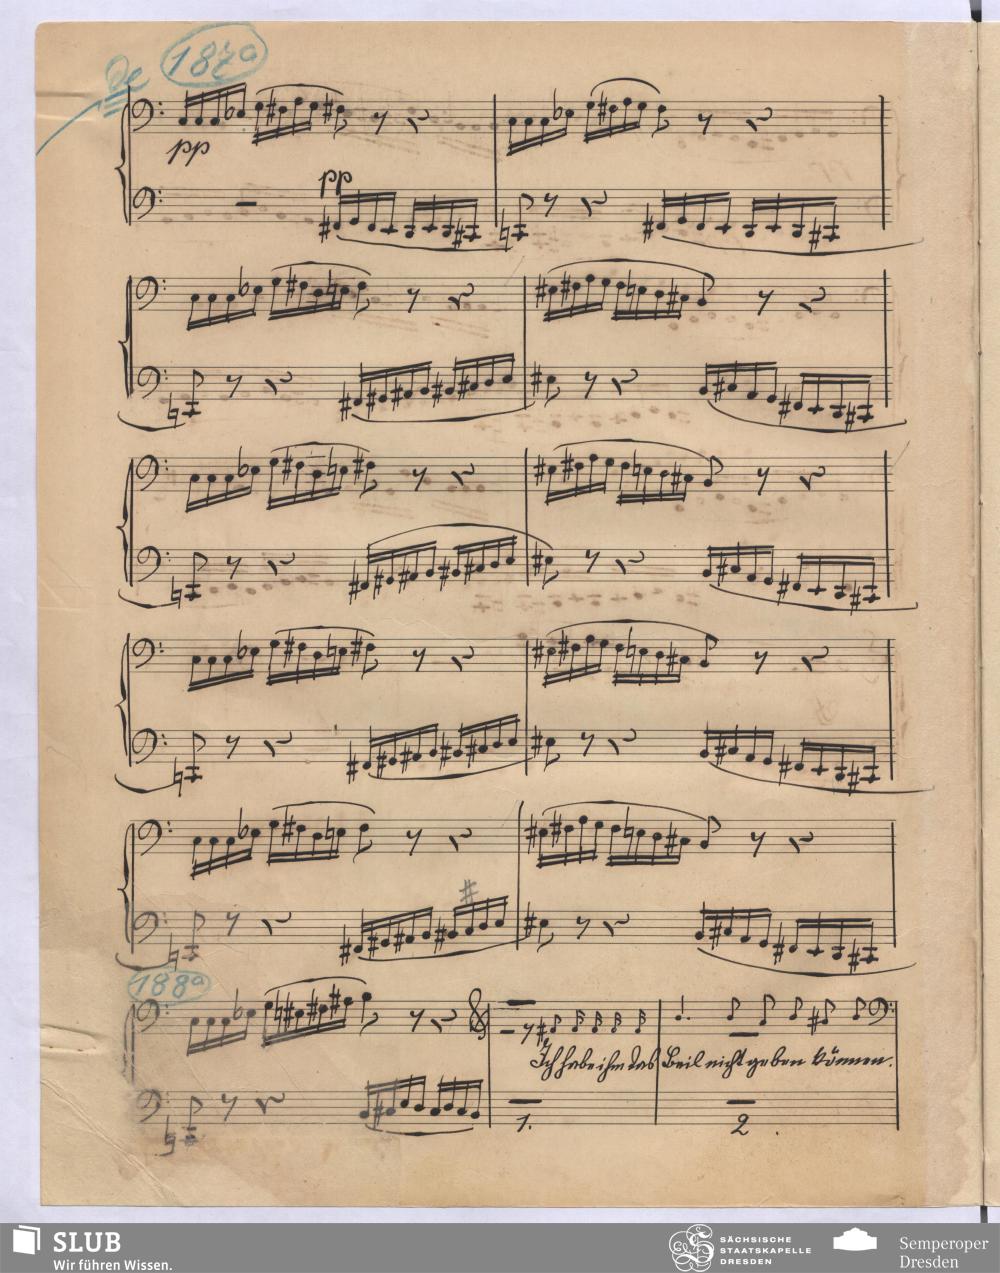 187a
pp
pp
188a
Ich habe ihm das Beil nicht geben können.
1.
2
SLUB
Wir führen Wissen.
SÄCHSISCHE
STAATSKAPELLE
DRESDEN
Semperoper
Dresden